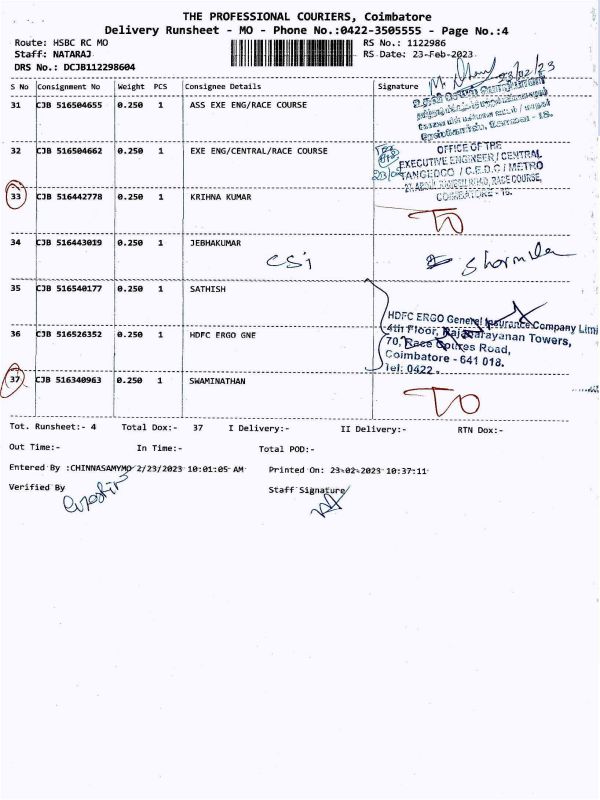 THE PROFESSIONAL COURIERS, Coimbatore
Delivery Runsheet - MO - Phone No.:0422-3505555 - Page No.:4
Route: HSBC RC MO RS No.: 1122986
Staff: NATARAJ RS Date: 23-Feb-2023
DRS No.: DCJB112298604
23/02/23
S No Consignment No Weight PCS Consignee Details Signature
31 CJB 516504655 0.250 1 ASS EXE ENG/RACE COURSE
32 CJB 516504662 0.250 1 EXE ENG/CENTRAL/RACE COURSE
OFFICE OF THE
EXECUTIVE ENGINEER / CENTRAL
TANGEDCO / C.E.D.C / METRO
RACE COURSE,
COIMBATORE - 18.
33 CJB 516442778 0.250 1 KRIHNA KUMAR
TO
34 CJB 516443019 0.250 1 JEBHAKUMAR
CSi Sharmila
35 CJB 516540177 0.250 1 SATHISH
HDFC ERGO General Insurance Company Limi
4th Floor, Rajanarayanan Towers,
36 CJB 516526352 0.250 1 HDFC ERGO GNE
70, Race Coures Road,
Coimbatore - 641 018.
Tel: 0422
37 CJB 516340963 0.250 1 SWAMINATHAN
TO
Tot. Runsheet:- 4 Total Dox:- 37 I Delivery:- II Delivery:- RTN Dox:-
Out Time:- In Time:- Total POD:-
Entered By :CHINNASAMYMO 2/23/2023 10:01:05 AM Printed On: 23-02-2023 10:37:11
Verified By Staff Signature